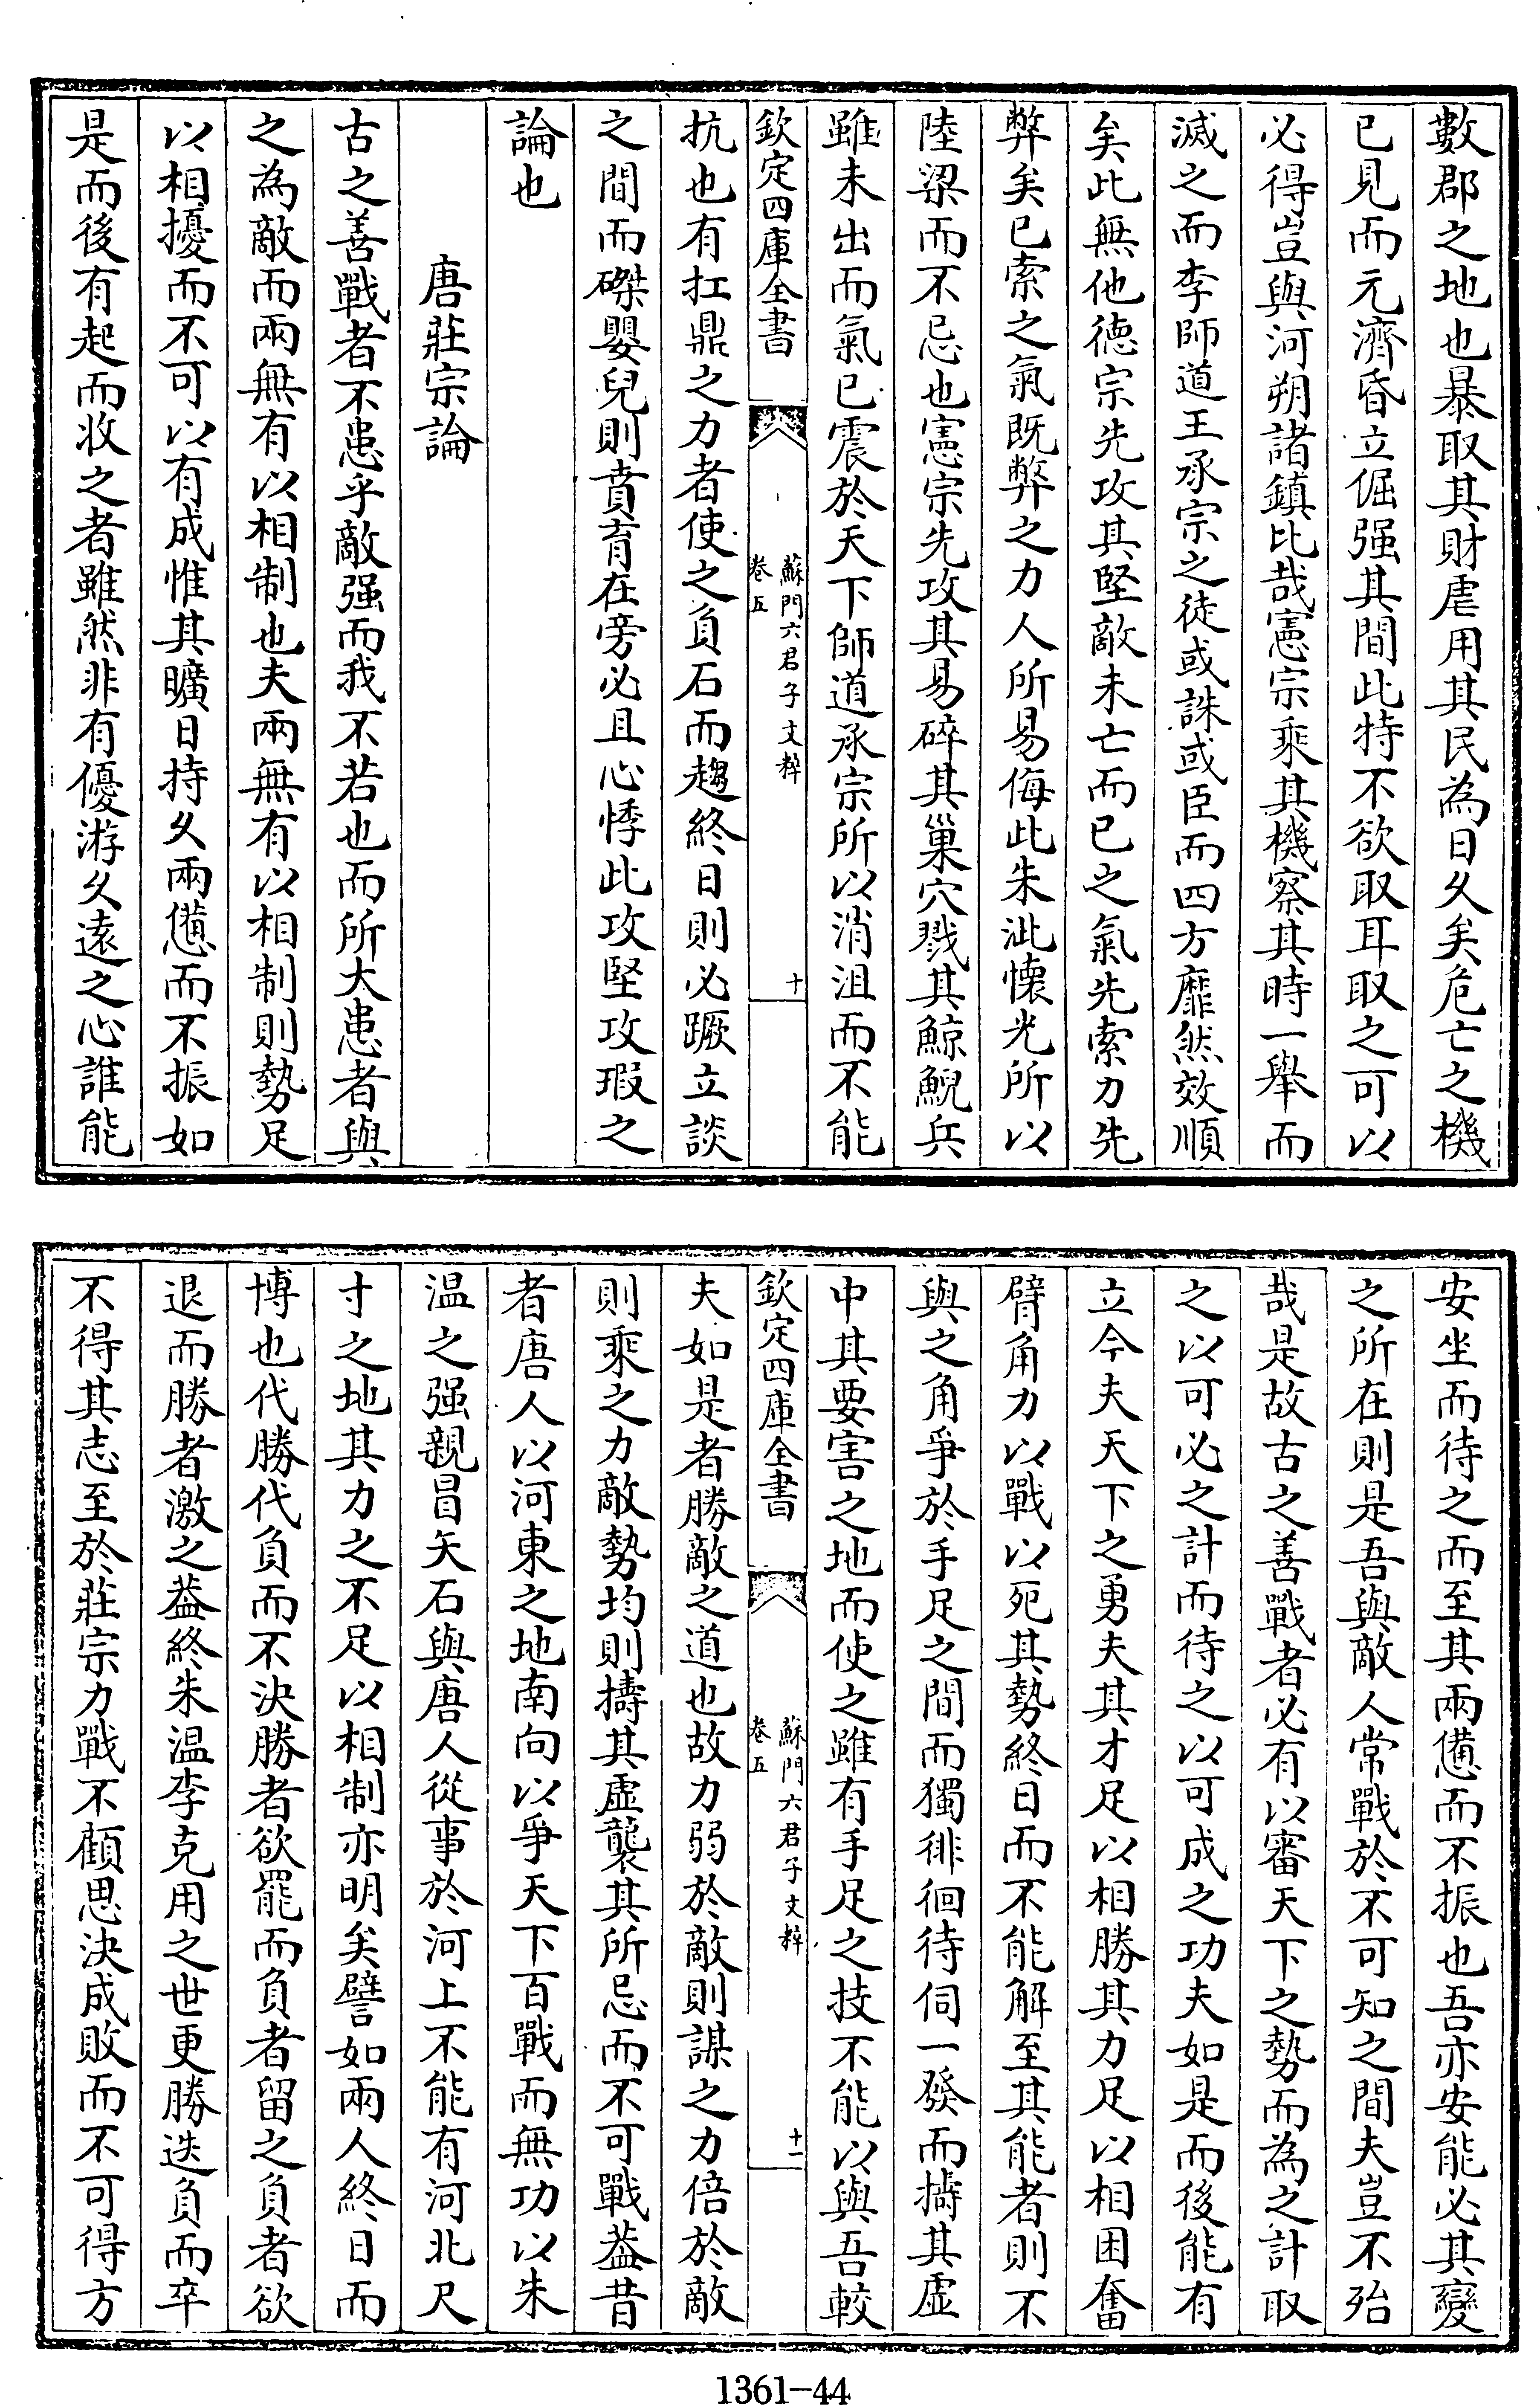 數郡之地也暴取其財虐用其民為日久矣危亡之機
已見而元濟昏立倔强其間此特不欲取耳取之可以
必得豈與河朔諸鎮比哉憲宗乘其機察其時一舉而
滅之而李師道王承宗之徒或誅或臣而四方靡然效順
矣此無他德宗先攻其堅敵未亡而已之氣先索力先
弊矣已索之氣既弊之力人所易侮此朱泚懷光所以
陸梁而不忌也憲宗先攻其易碎其巢穴戮其鯨鯢兵
雖未出而氣已震於天下師道承宗所以消沮而不能
欽定四庫全書
蘇門六君子文粹
卷五
十
抗也有扛鼎之力者使之負石而趨終日則必蹶立談
之間而磔嬰兒則賁育在旁必且心悸此攻堅攻瑕之
論也
唐莊宗論
古之善戰者不患乎敵强而我不若也而所大患者與
之為敵而兩無有以相制也夫兩無有以相制則勢足
以相擾而不可以有成惟其曠日持久兩憊而不振如
是而後有起而收之者雖然非有優游久遠之心誰能
安坐而待之而至其兩憊而不振也吾亦安能必其變
之所在則是吾與敵人常戰於不可知之間夫豈不殆
哉是故古之善戰者必有以審天下之勢而為之計取
之以可必之計而待之以可成之功夫如是而後能有
立今夫天下之勇夫其才足以相勝其力足以相困奮
臂角力以戰以死其勢終日而不能解至其能者則不
與之角爭於手足之間而獨徘徊待伺一發而擣其虛
中其要害之地而使之雖有手足之技不能以與吾較
欽定四庫全書
蘇門六君子文粹
卷五
十一
夫如是者勝敵之道也故力弱於敵則謀之力倍於敵
則乘之力敵勢均則擣其虛襲其所忌而不可戰葢昔
者唐人以河東之地南向以爭天下百戰而無功以朱
温之强親冒矢石與唐人從事於河上不能有河北尺
寸之地其力之不足以相制亦明矣譬如兩人終日而
博也代勝代負而不決勝者欲罷而負者留之負者欲
退而勝者激之葢終朱温李克用之世更勝迭負而卒
不得其志至於莊宗力戰不顧思決成敗而不可得方
1361-44